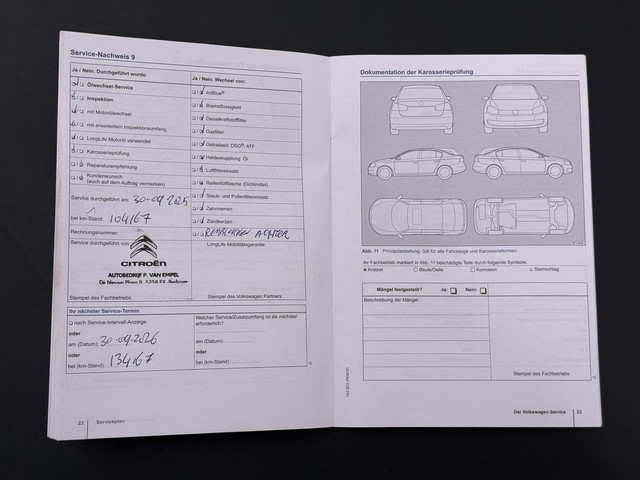 Service-Nachweis 9
Ja / Nein. Durchgeführt wurde:
Ölwechsel-Service
Inspektion
mit Motorölwechsel
mit erweitertem Inspektionsumfang
LongLife Motoröl verwendet
Karosserieprüfung
Reparaturempfehlung
Kundenwunsch
(auch auf dem Auftrag vermerken)
Ja / Nein. Wechsel von:
AdBlue®
Bremsflüssigkeit
Dieselkraftstofffilter
Gasfilter
Getriebeöl: DSG®, ATF
Haldexkupplung: Öl
Luftfiltereinsatz
Reifenfüllflasche (Dichtmittel)
Staub- und Pollenfiltereinsatz
Zahnriemen
Zündkerzen
REMBLOKKEN ACHTER
Service durchgeführt am: 30-09-2025
bei km-Stand: 104167
Rechnungsnummer:
Service durchgeführt von:
CITROËN
AUTOBEDRIJF P. VAN EMPEL
Stempel des Fachbetriebs
LongLife Mobilitätsgarantie:
Stempel des Volkswagen Partners
Ihr nächster Service-Termin
nach Service-Intervall-Anzeige
oder
am (Datum): 30-09-2026
oder
bei (km-Stand): 134167
Welcher Service/Zusatzumfang ist als nächster
erforderlich?
am (Datum):
bei (km-Stand):
22 Serviceplan
Dokumentation der Karosserieprüfung
Abb. 11 Prinzipdarstellung. Gilt für alle Fahrzeuge und Karosserieformen.
Ihr Fachbetrieb markiert in Abb. 11 beschädigte Teile durch folgende Symbole:
Kratzer Beule/Delle Korrosion Steinschlag
Mängel festgestellt? Ja: Nein:
Beschreibung der Mängel:
Stempel des Fachbetriebs
Der Volkswagen Service 23